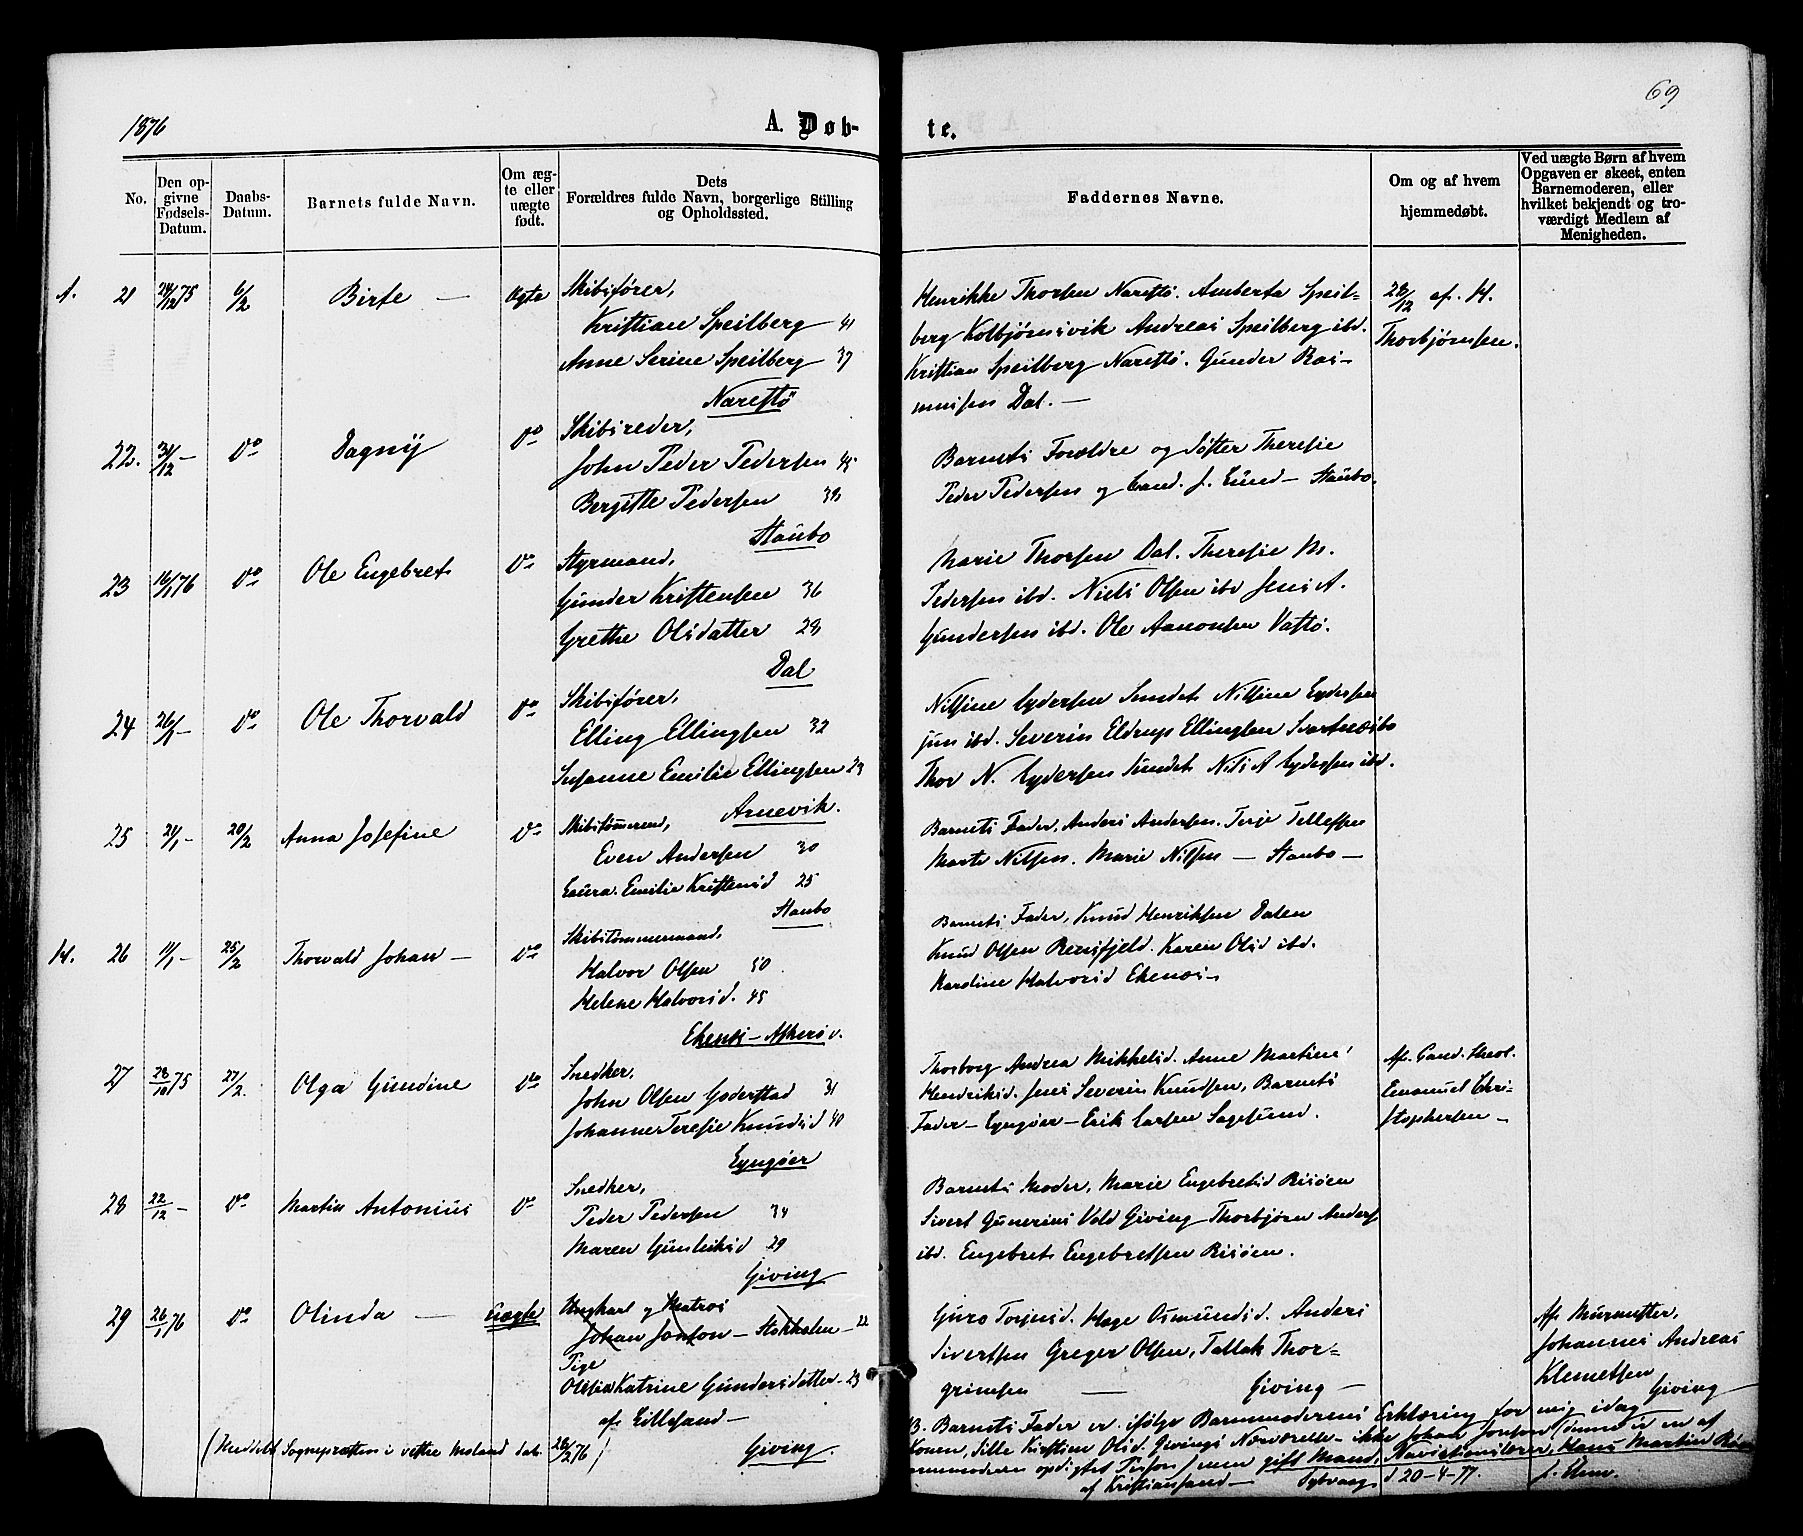 69
1876
A. Døb-
te.
No.
Den op-
givne
Fødsels-
Datum.
Daabs-
Datum.
Barnets fulde Navn.
Om æg-
te eller
uægte
født.
Dets
Forældres fulde Navn, borgerlige Stilling
og Opholdssted.
Faddernes Navne.
Om og af hvem
hjemmedøbt.
Ved uægte Børn af hvem
Opgaven er skeet, enten
Barnemoderen, eller
hvilket bekjendt og tro-
værdigt Medlem af
Menigheden.
A. 21 24/12 75 6/2 Birte — Ægte Skibsfører,
Kristian Speilberg 41
Anne Serine Speilberg 37
Narestö
Henrikke Thorsen Narestö. Amberta Speil-
berg Kolbjørnsvik Andreas Speilberg ibd.
Kristian Speilberg Narestö. Gunder Ras-
musen Dal. —
28/12 af. H.
Thorbjørnsen.
22. 31/12 — Do Dagny Do Skibsreder,
John Peder Pedersen 45
Bergitte Pedersen 38
Staubo
Barnets Forældre og Søster Theresie
Peder Pedersen og Cand. J. Lund — Staubo.
23 16/1 76 Do Ole Engebret Do Styrmand,
Gunder Kristensen 36
Grethe Olsdatter 28
Dal
Marie Thorsen Dal. Theresie M.
Pedersen ibd. Niels Olsen ibd Jens A.
Gundersen ibd. Ole Aanonsen Vastö.
24 26/1 — Do Ole Thorvald Do Skibsfører,
Elling Ellingsen 32
Susanne Emilie Ellingsen 29
Arnevik.
Nilsine Lydersen Sundet Nilsine Lydersen
jun ibd. Severin Eldrup Ellingsen Svartnæsbo
Thor N. Lydersen Sundet Nils A Lydersen ibd.
25 24/1 — 20/2 Anna Josefine Do Skibstømmermd,
Even Andersen 30
Laura Emilie Kristensd 25
Staubo
Barnets Fader, Anders Andersen. Terje Tellefsen
Marte Nilsen. Marie Nilsen — Staubo —
H. 26 11/1 — 25/2 Thorvald Johan — Do Skibstømmermand,
Halvor Olsen 50
Helene Halvorsd. 45
Ekenes — Askerö.
Barnets Fader, Knud Henriksen Dalen
Knud Olsen Rensfjeld. Karen Olsd ibd.
Karoline Halvorsd Ekenæs —
27 28/10 75 27/2. Olga Gundine Do Snedker,
John Olsen Goderstad 31
Johanne Teresie Knudsd 40
Lyngöer
Thorborg Andrea Mikkelsd. Anne Martine
Hendriksd. Jens Severin Knudsen, Barnets
Fader — Lyngøer — Erik Larsen Sagesund.
Af. Cand. theol.
Emanuel Chri-
stophersen —
28 22/12 — Do Martin Antonius Do Snedker,
Peder Pedersen 34
Maren Gunleiksd 29
Giving
Barnets Moder, Marie Engebretsd Risöen
Sivert Gunerius Vold Giving Thorbjørn Anders
ibd. Engebret Engebretsen Risöen.
29 26/1 76 Do Olinda — Uægte Ungkarl og Matros
Johan Jonson — Stokholm — 22
Pige
Olesia Katrine Gundersdatter — 23
af Lillesand —
Giving.
Guro Torjusd. Hage Osmundsd. Anders
Sivertsen Greger Olsen, Tallak Thor-
grimsen — Giving —
Af Murmester,
Johannes Andreas
Klemetsen
Giving —
(Meddelt Sognepræsten i vestre Moland dat. 28/2 76)
B. Barnets Fader er ifölge Barnmoderens Erklæring for mig idag
Konen, Sille Kirstine Olsd. Givings Nærværelse — ikke Johan Jonson (denne er en af
rnemoderen opdigtet Person) men gift Mand, Navigationslærer, Hans Martin
af Kristiansand — Dybvaag d 20-4-77.